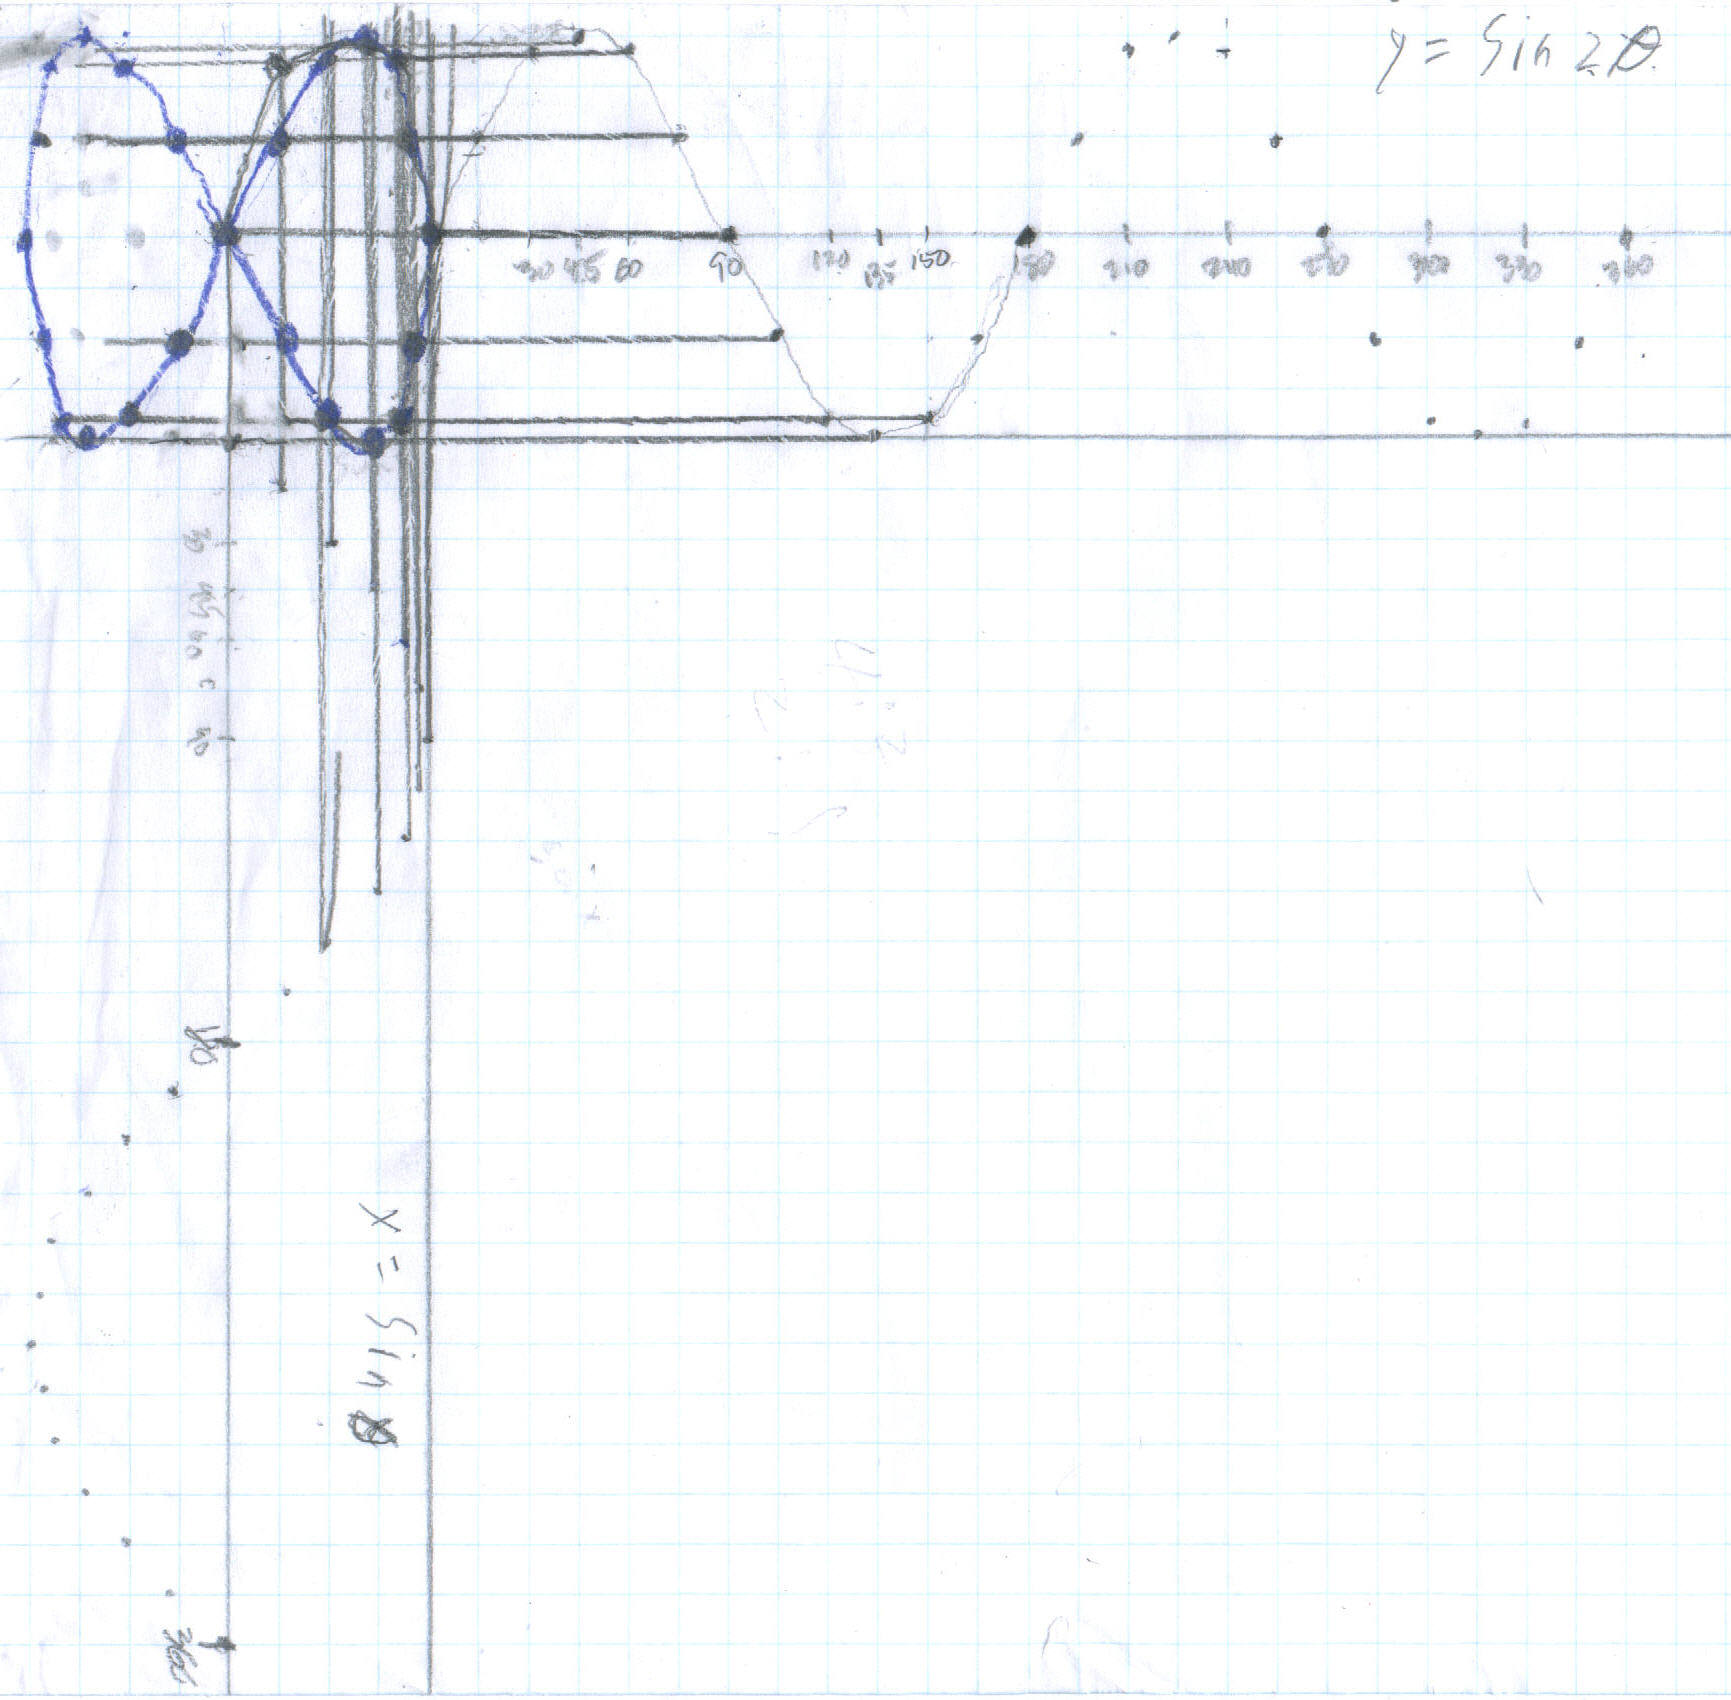 y = Sin 2θ
30 45 60 90 120 135 150 180 210 240 270 300 330 360
30
45
60
90
180
x = Sin θ
360